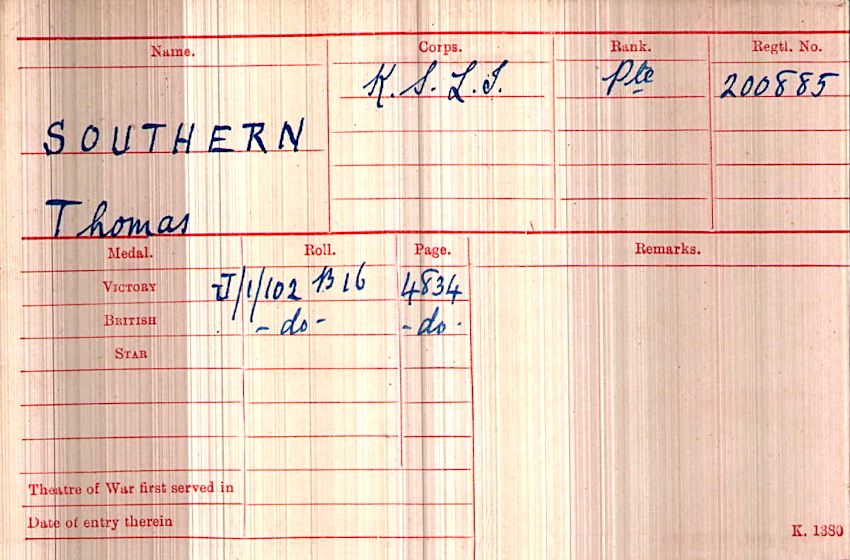 Name. Corps. Rank. Regtl. No.
K. S. L. I. Pte 200885
SOUTHERN
Thomas
Medal. Roll. Page. Remarks.
VICTORY J/1/102 B16 4834
BRITISH -do- -do-
STAR
Theatre of War first served in
Date of entry therein
K. 1380